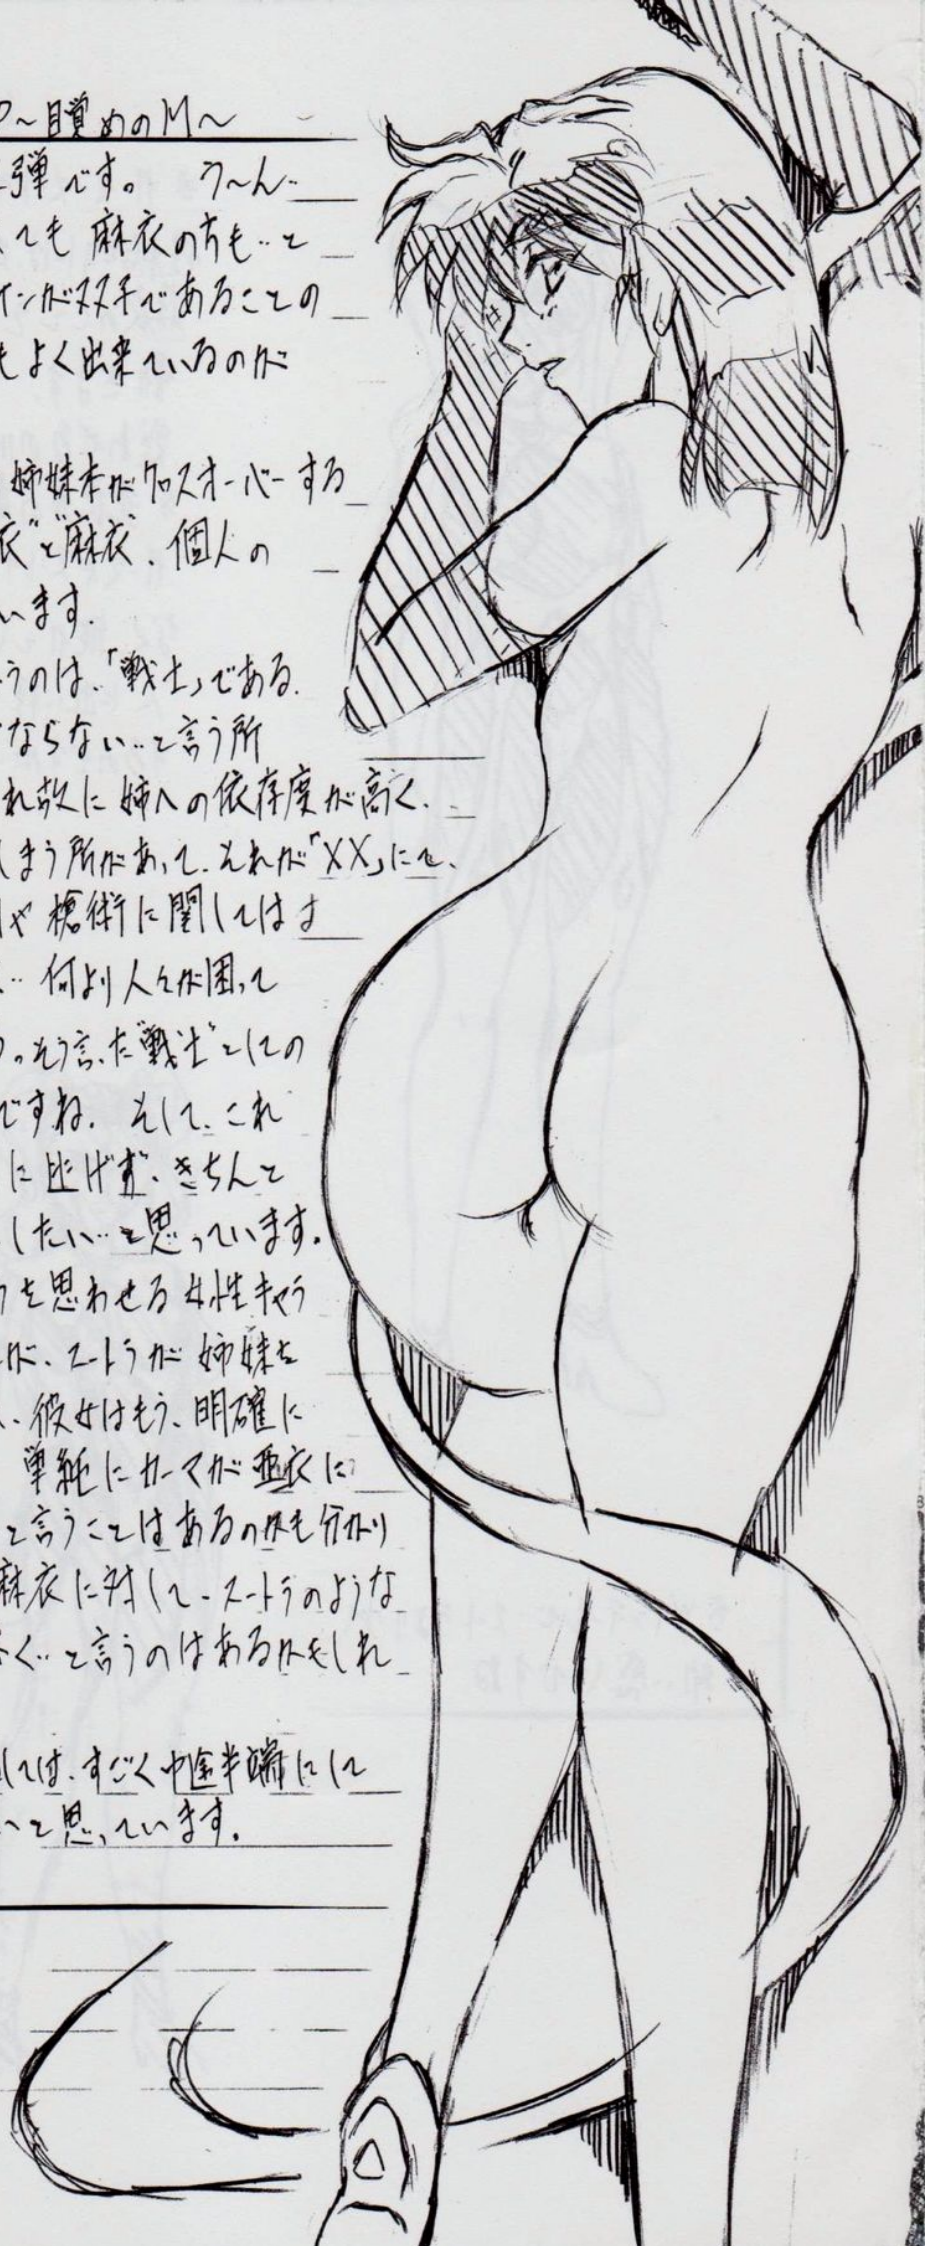 ～目覚めのM～
弾です。 う～ん‥
ても 麻衣の方も‥と
インが双子であることの
もよく出来ているのが
姉妹本がクロスオーバーする
衣”と“麻衣”、個人の
います。
うのは、「戦士」である。
ならない‥と言う所
れ故に 姉への依存度が高く、
しまう所があって、それが「XX」にて、
や 槍術に関しては
‥何より人々が困って
そう言った“戦士”としての
ですね。 そして、これ
に逃げず、きちんと
したい‥と思っています。
を思わせる 女性キャラ
が、スートラが 姉妹を
、彼女はもう、明確に
単純にカーマが亜衣に
と言うことはあるのかも分かり
麻衣に対して、スートラのような
く‥と言うのはあるかもしれ
しては、すごく中途半端にして
いと思っています。